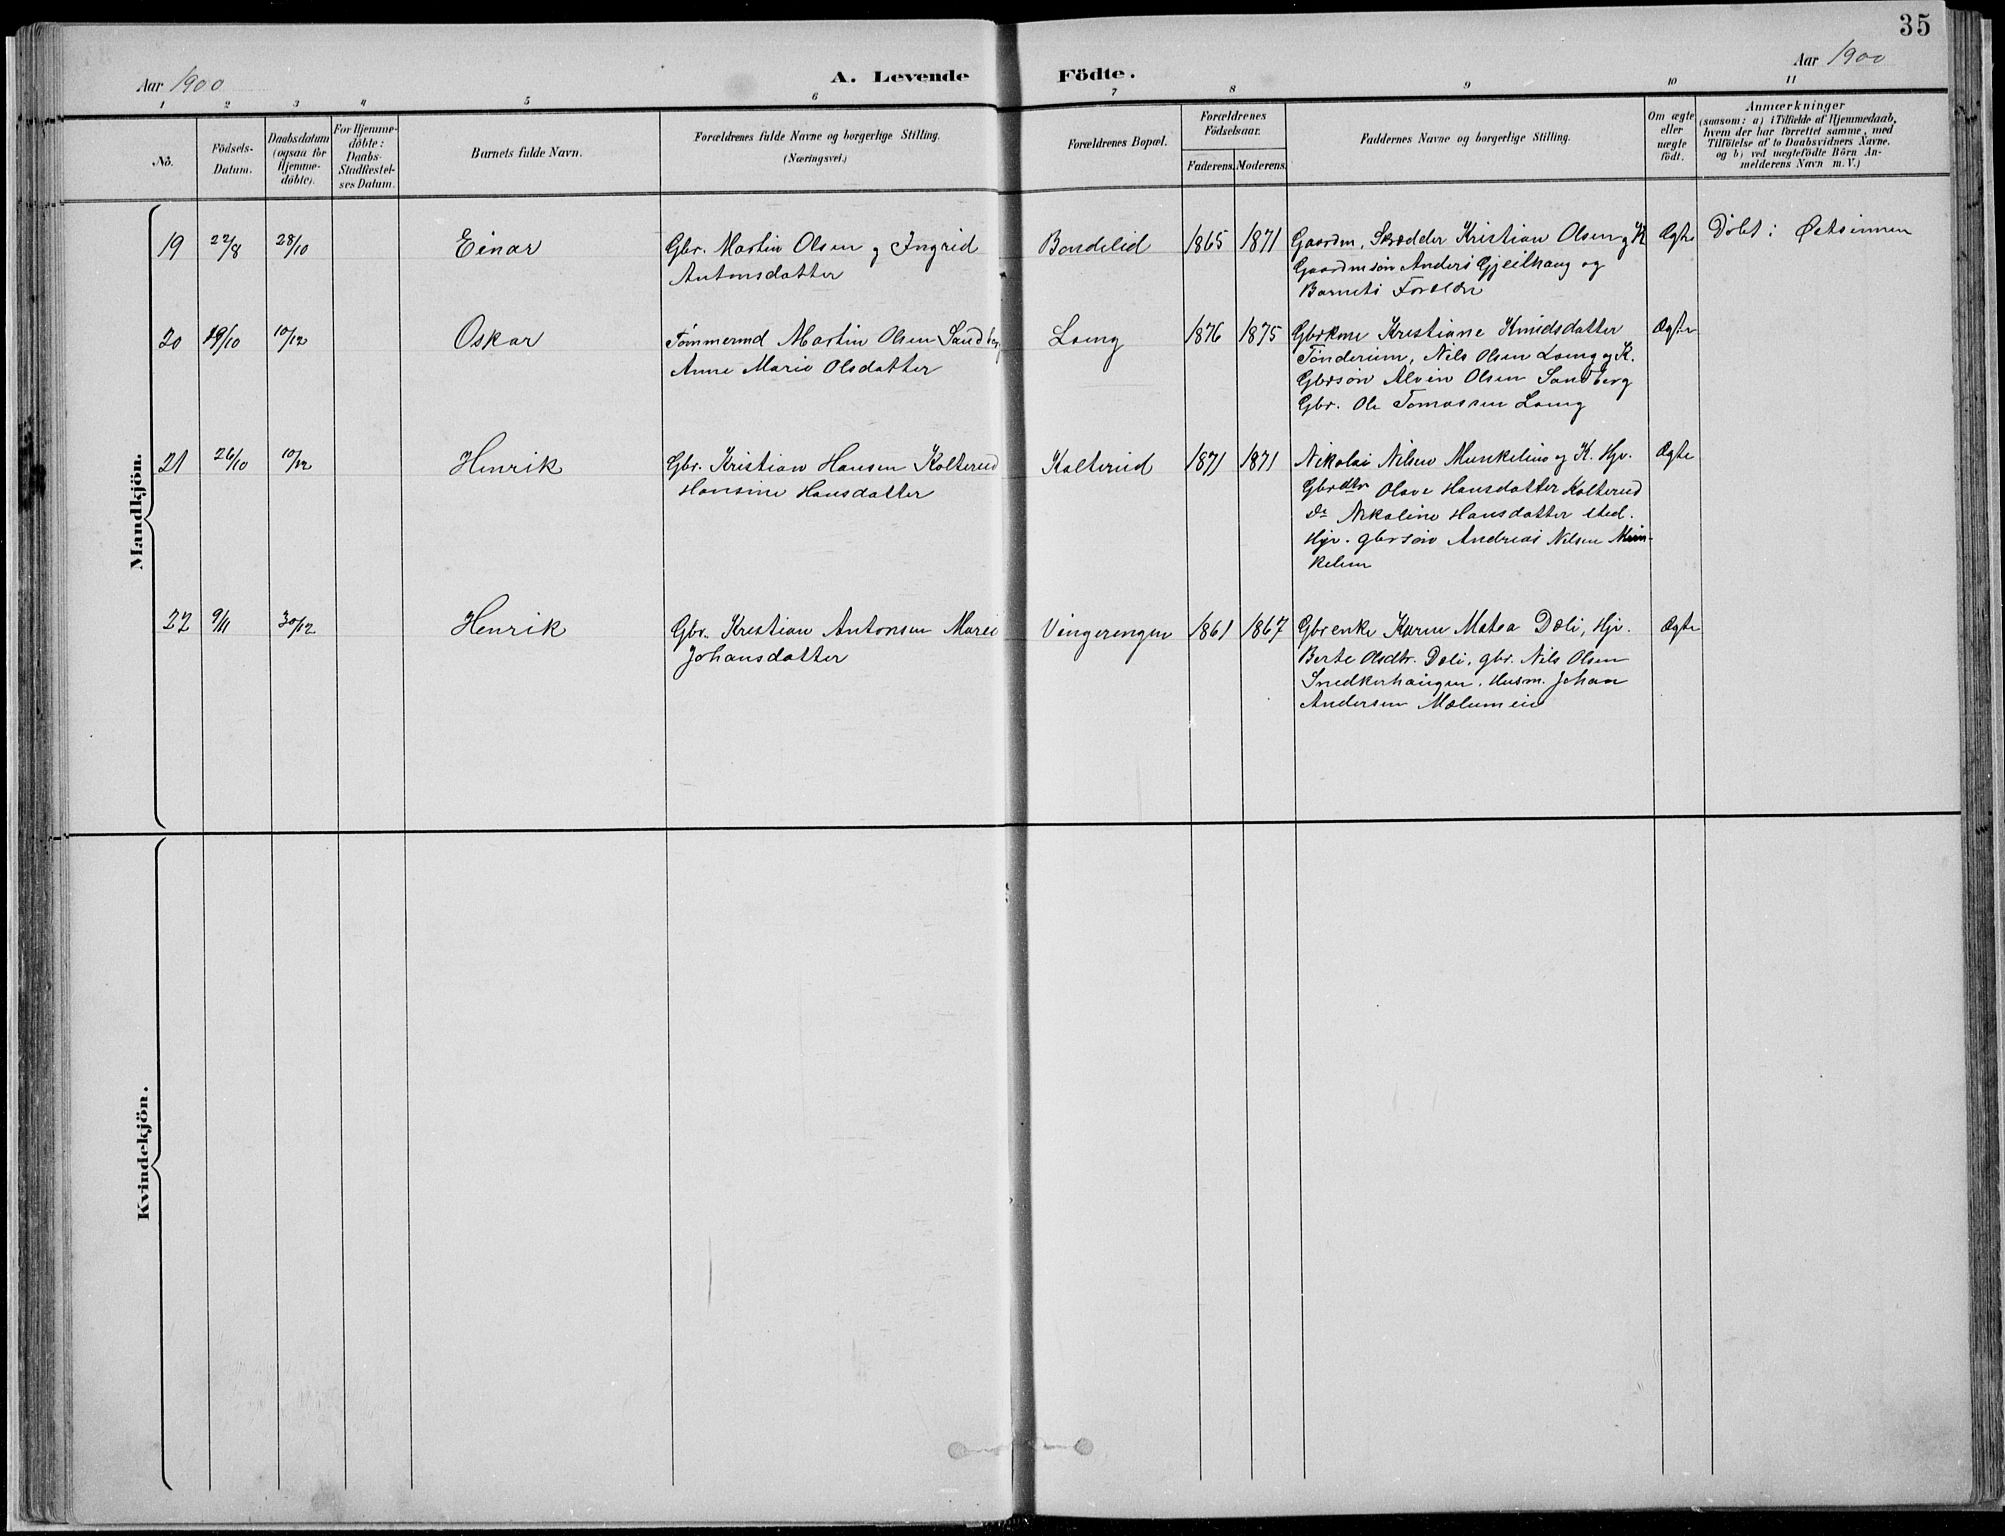 35
Aar 1900
A. Levende Födte.
Aar 1900
1 2 3 4 5 6 7 8 9 10 11
No.
Födsels-Datum.
Daabsdatum (ogsaa for Hjemme-döbte).
For Hjemme-döbte: Daabs-Stadfæstel-ses Datum.
Barnets fulde Navn.
Forældrenes fulde Navne og borgerlige Stilling. (Næringsvei.)
Forældrenes Bopæl.
Forældrenes Födselsaar.
Faderens. Moderens.
Faddernes Navne og borgerlige Stilling.
Om ægte eller uægte födt.
Anmærkninger
(saasom: a) i Tilfælde af Hjemmedaab, hvem der har forrettet samme, med Tilföielse af to Daabsvidners Navne, og b) ved uægtefödte Börn An-melderens Navn m. V.)
Mandkjön.
19 22/8 28/10 Einar Gbr. Martin Olsen og Ingrid Bondelid 1865 1871 Gaardm. Skrædder Kristian Olsen og K Ægte Döbt i
Antonsdatter Gaardmsön Anders Gjeilhaug og
Barnets Forældre
20 19/10 10/12 Oskar Tömmermd Martin Olsen Sandberg Loeng 1876 1875 Gbrkone Kristiane Knudsdatter Ægte
Anne Marie Olsdatter Tönderum, Nils Olsen Loeng og K.
Gbrsön Alvin Olsen Sandberg
Gbr. Ole Tomassen Loeng
21 26/10 10/12 Henrik Gbr. Kristian Hansen Kolterud Kolterud 1871 1871 Nikolai Nilsen Munkelien og K. Hjv. Ægte
Hansine Hansdatter Gbrdtr Olave Hansdatter Kolterud
do Nikoline Hansdatter sted.
Hjv. gbrsön Andreas Nilsen Mun-
kelien
22 9/11 30/12 Henrik Gbr. Kristian Antonsen Marie Vingerengen 1861 1867 Gbrenke Karen Matea Dæli, Hjv. Ægte
Johansdatter Berte Olsdtr. Dæli, gbr. Nils Olsen
Snedkerhaugen, Husm. Johan
Andersen Mælumeie
Kvindekjön.